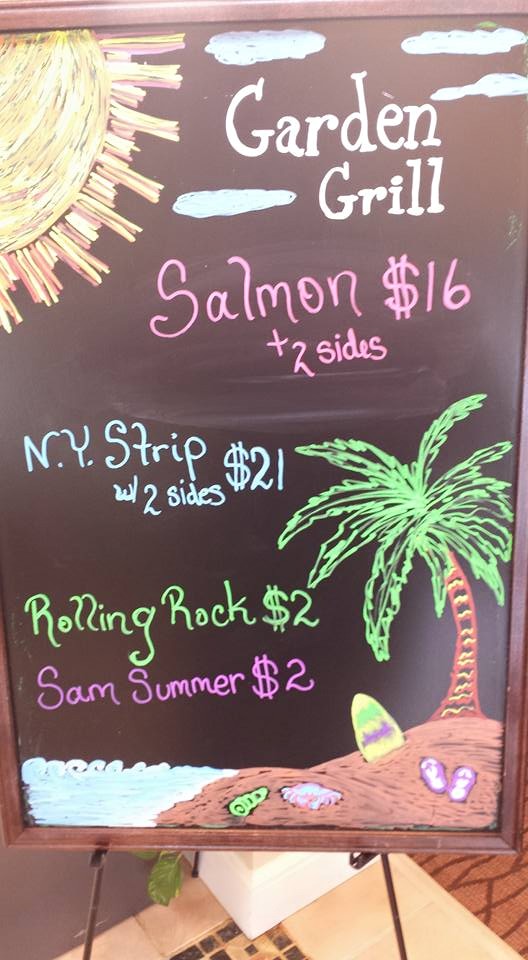 Garden
Grill
Salmon $16
+ 2 sides
N.Y. Strip $21
w/ 2 sides
Rolling Rock $2
Sam Summer $2